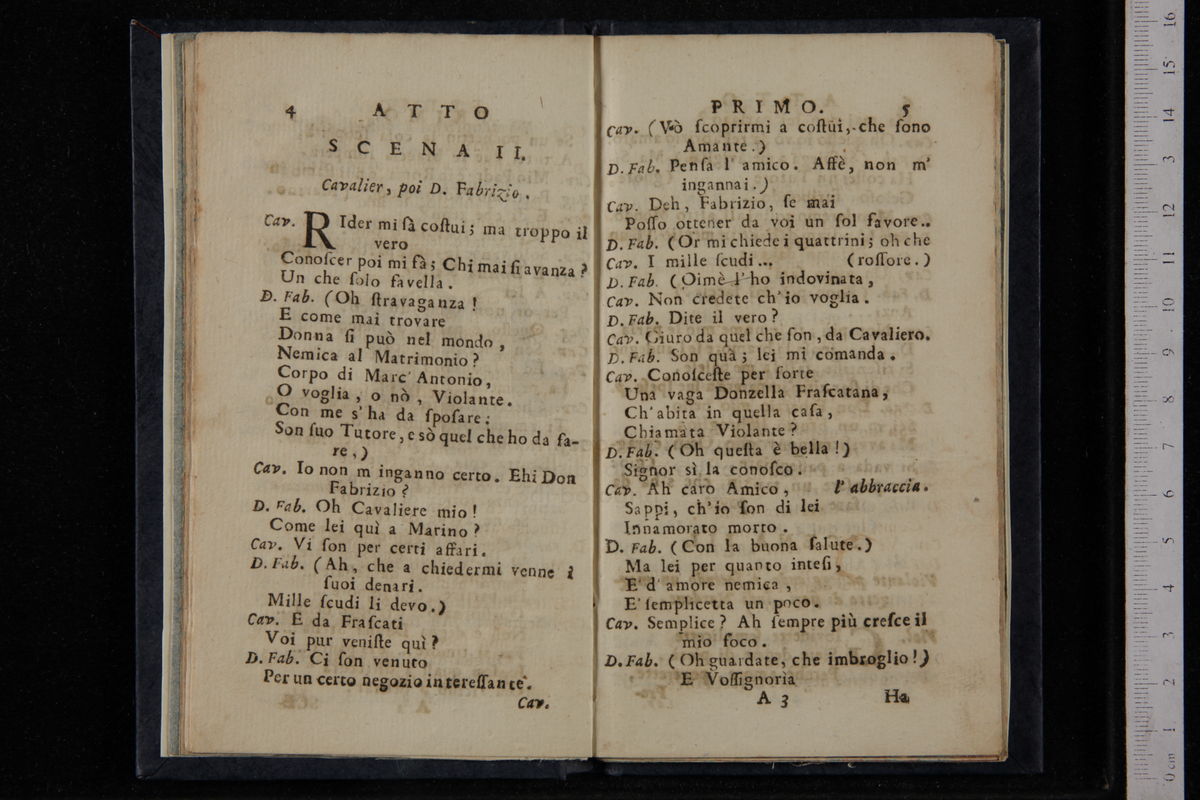 4 ATTO
SCENA II.
Cavalier, poi D. Fabrizio.
Cav. RIder mi fà coſtui; ma troppo il
vero
Conoſcer poi mi fà; Chi mai ſi avanza?
Un che ſolo favella.
D. Fab. (Oh ſtravaganza!
E come mai trovare
Donna ſi può nel mondo,
Nemica al Matrimonio?
Corpo di Marc' Antonio,
O voglia, o nò, Violante.
Con me s'ha da ſpoſare:
Son ſuo Tutore, e sò quel che ho da fa-
re,)
Cav. Io non m inganno certo. Ehi Don
Fabrizio?
D. Fab. Oh Cavaliere mio!
Come lei quì a Marino?
Cav. Vi ſon per certi affari.
D. Fab. (Ah, che a chiedermi venne i
ſuoi denari.
Mille ſcudi li devo.)
Cav. E da Fraſcati
Voi pur veniſte quì?
D. Fab. Ci ſon venuto
Per un certo negozio intereſſante.
Cav.
PRIMO. 5
Cav. (Vò ſcoprirmi a coſtui, che ſono
Amante.)
D. Fab. Penſa l' amico. Affè, non m'
ingannai.)
Cav. Deh, Fabrizio, ſe mai
Poſſo ottener da voi un ſol favore..
D. Fab. (Or mi chiede i quattrini; oh che
Cav. I mille ſcudi... (roſſore.)
D. Fab. (Oimè l'ho indovinata,
Cav. Non credete ch'io voglia.
D. Fab. Dite il vero?
Cav. Giuro da quel che ſon, da Cavaliero.
D. Fab. Son quà; lei mi comanda.
Cav. Conoſceſte per ſorte
Una vaga Donzella Fraſcatana,
Ch'abita in quella caſa,
Chiamata Violante?
D. Fab. (Oh queſta è bella!)
Signor sì la conoſco.
Cav. Ah caro Amico, l' abbraccia.
Sappi, ch'io ſon di lei
Innamorato morto.
D. Fab. (Con la buona ſalute.)
Ma lei per quanto inteſi,
E' d' amore nemica,
E' ſemplicetta un poco.
Cav. Semplice? Ah ſempre più creſce il
mio foco.
D. Fab. (Oh guardate, che imbroglio!)
E Voſſignorìa
A 3 Ha